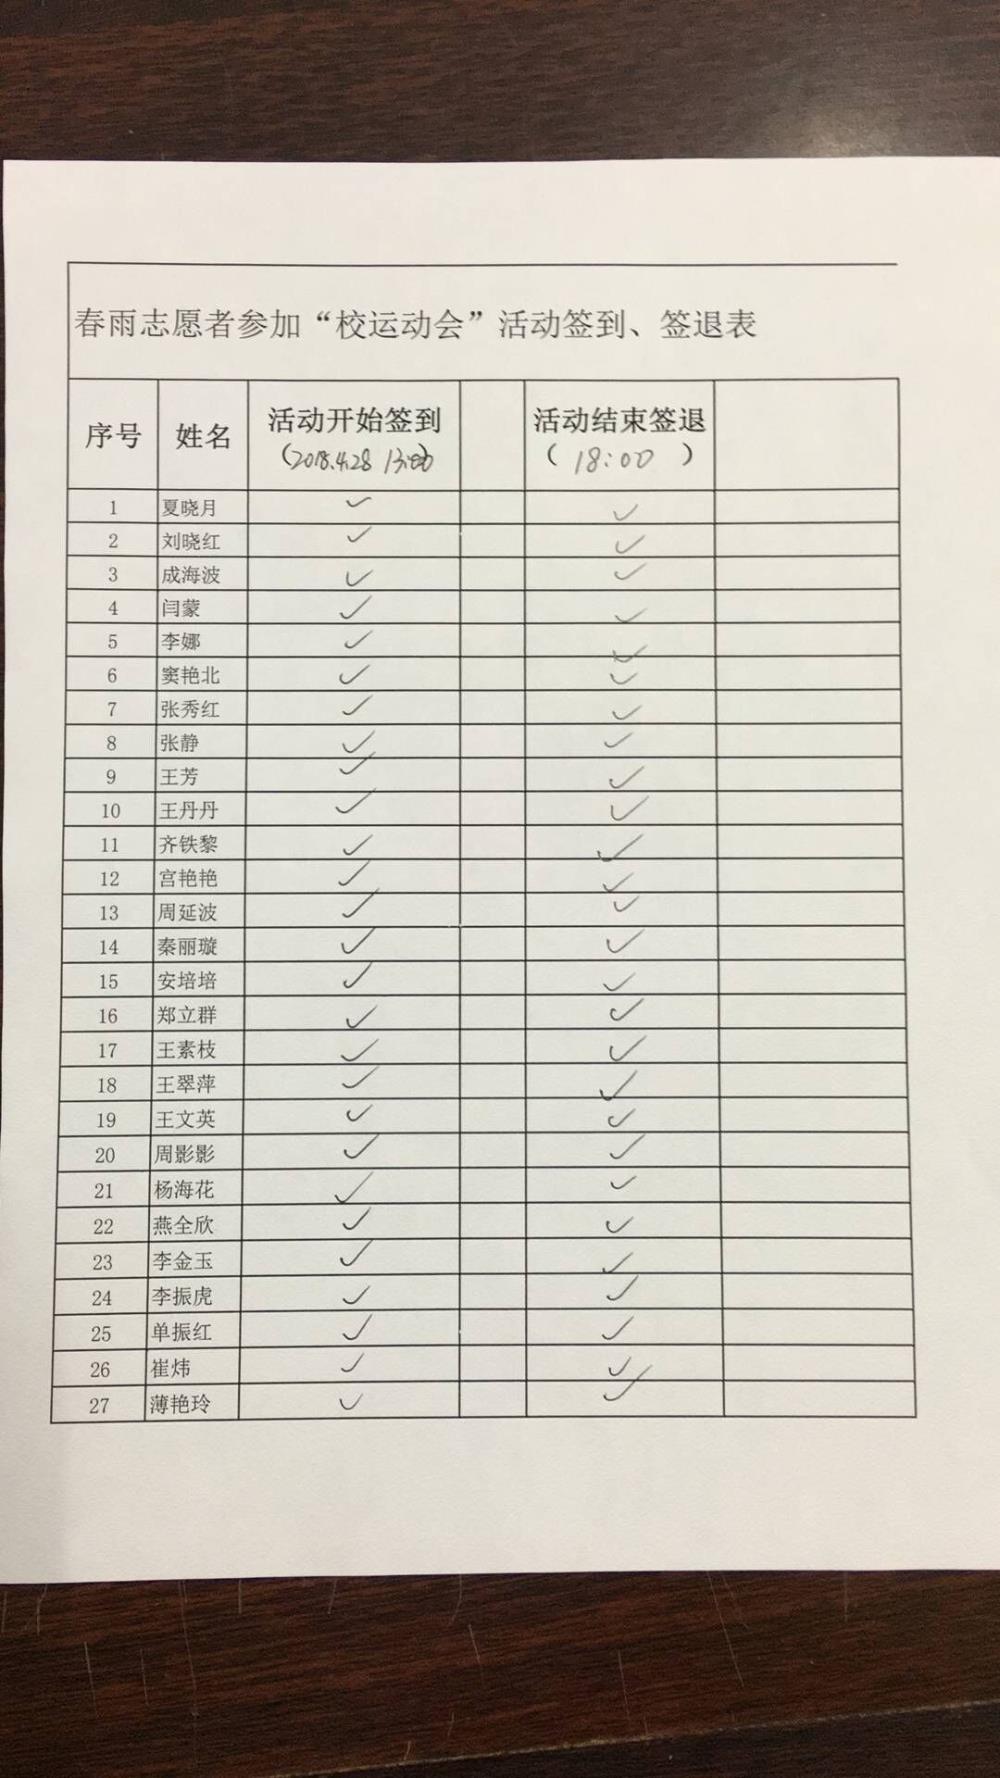 春雨志愿者参加“校运动会”活动签到、签退表
序号 姓名 活动开始签到 活动结束签退
(2018.4.28 13:00) (18:00)
1 夏晓月 ✓ ✓
2 刘晓红 ✓ ✓
3 成海波 ✓ ✓
4 闫蒙 ✓ ✓
5 李娜 ✓ ✓
6 窦艳北 ✓ ✓
7 张秀红 ✓ ✓
8 张静 ✓ ✓
9 王芳 ✓ ✓
10 王丹丹 ✓ ✓
11 齐铁黎 ✓ ✓
12 宫艳艳 ✓ ✓
13 周延波 ✓ ✓
14 秦丽璇 ✓ ✓
15 安培培 ✓ ✓
16 郑立群 ✓ ✓
17 王素枝 ✓ ✓
18 王翠萍 ✓ ✓
19 王文英 ✓ ✓
20 周影影 ✓ ✓
21 杨海花 ✓ ✓
22 燕全欣 ✓ ✓
23 李金玉 ✓ ✓
24 李振虎 ✓ ✓
25 单振红 ✓ ✓
26 崔炜 ✓ ✓
27 薄艳玲 ✓ ✓